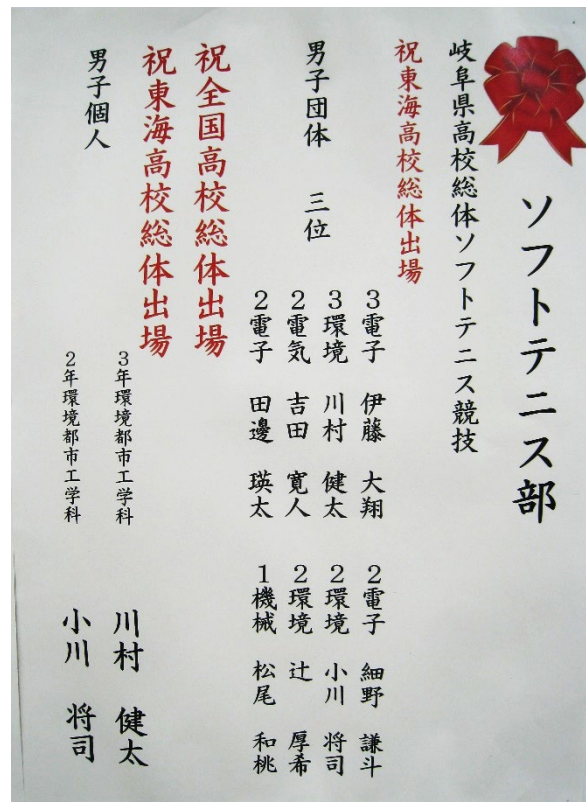 ソフトテニス部
岐阜県高校総体ソフトテニス競技
祝東海高校総体出場
男子団体　三位
3電子　伊藤　大翔　2電子　細野　謙斗
3環境　川村　健太　2環境　小川　将司
2電気　吉田　寛人　2環境　辻　厚希
2電子　田邊　瑛太　1機械　松尾　和桃
祝全国高校総体出場
祝東海高校総体出場
男子個人
3年環境都市工学科　川村　健太
2年環境都市工学科　小川　将司